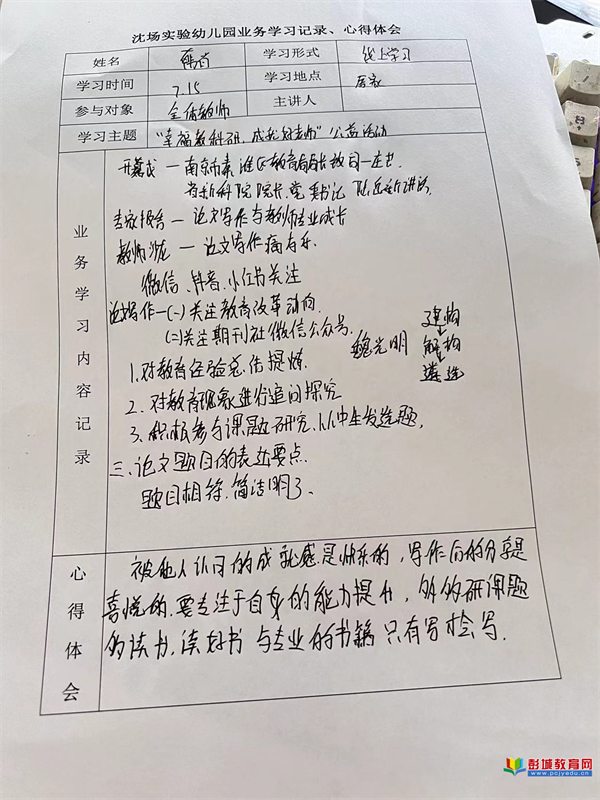 沈场实验幼儿园业务学习记录、心得体会
姓名 学习形式 线上学习
学习时间 7.15 学习地点 居家
参与对象 全体教师 主讲人
学习主题 "幸福教科研,成就好老师"公益活动
业务学习内容记录
开幕式一南京市
专家报告一论文写作与教师专业成长
教师沙龙一论文写作痛与乐
微信、抖音、小红书关注
论文写作一(一)关注教育改革动向
(二)关注期刊社微信公众号.
魏光明 建构
解构
遴选
1.对教育经验总结提炼.
2.对教育现象进行追问探究
3.积极参与课题研究,从中生发选题.
三、论文题目的表达要点.
题目相符.简洁明了、
心得体会
被他人认可的成就感是快乐的,写作后的分享是
喜悦的.要专注于自身的能力提升,多的研课题
的读书,读好书与专业的书籍只有写才会写.
彭城教育网
www.pcjyedu.cn